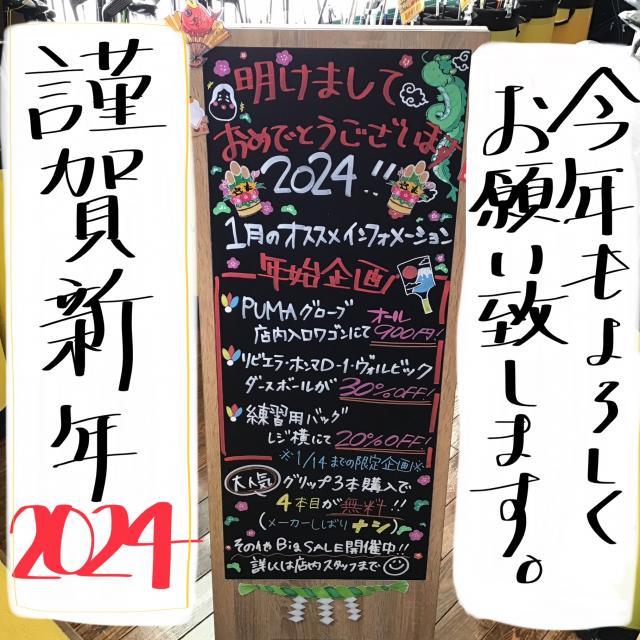 謹賀新年
2024
明けまして
おめでとうございます
2024!!
1月のオススメインフォメーション
年始企画
PUMAグローブ
店内入口ワゴンにて オール900円!
リビエラ・ホンマD-1・ヴォルビック
ダースボールが 30%OFF!
練習用バッグ
レジ横にて 20%OFF!
※1/14までの限定企画※
大人気 グリップ3本購入で
4本目が無料!!
(メーカーしばりナシ)
その他BigSALE開催中!!
詳しくは店内スタッフまで
今年もよろしく
お願い致します。